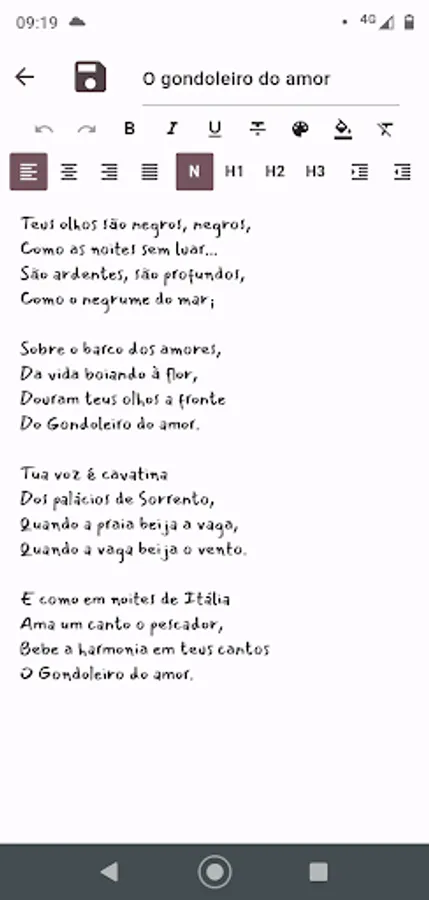 09:19
4G
O gondoleiro do amor
B I U T
N H1 H2 H3
Teus olhos são negros, negros,
Como as noites sem luar...
São ardentes, são profundos,
Como o negrume do mar;
Sobre o barco dos amores,
Da vida boiando à flor,
Douram teus olhos a fronte
Do Gondoleiro do amor.
Tua voz é cavatina
Dos palácios de Sorrento,
Quando a praia beija a vaga,
Quando a vaga beija o vento.
E como em noites de Itália
Ama um canto o pescador,
Bebe a harmonia em teus cantos
O Gondoleiro do amor.